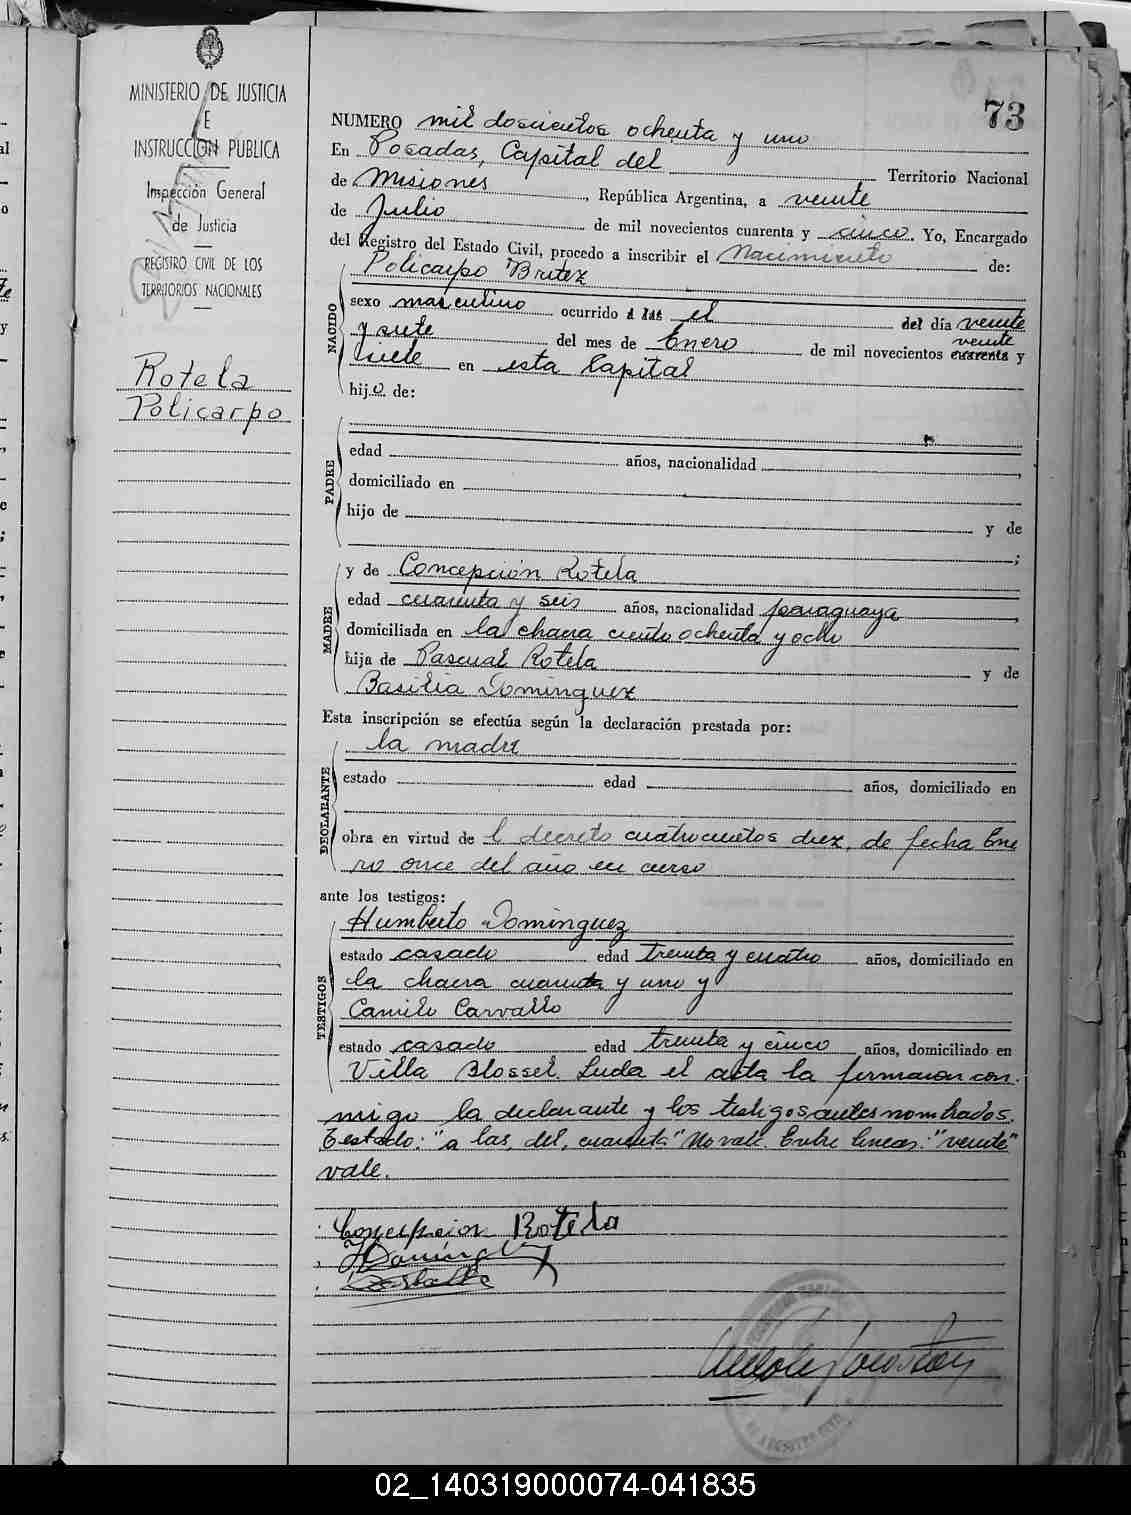 MINISTERIO DE JUSTICIA
E
INSTRUCCION PUBLICA
Inspección General
de Justicia
REGISTRO CIVIL DE LOS
TERRITORIOS NACIONALES
Rotela
Policarpo
73
NUMERO mil doscientos ochenta y uno
En Posadas, Capital del Territorio Nacional
de Misiones, República Argentina, a veinte
de Julio de mil novecientos cuarenta y cinco. Yo, Encargado
del Registro del Estado Civil, procedo a inscribir el Nacimiento de:
Policarpo Britez
NACIDO
sexo masculino ocurrido a las el del día veinte
y siete del mes de Enero de mil novecientos cuarenta y
veinte
siete en esta Capital
hijo de:
PADRE
edad años, nacionalidad
domiciliado en
hijo de y de
;
MADRE
y de Concepción Rotela
edad cuarenta y seis años, nacionalidad paraguaya,
domiciliada en la chacra ciento ochenta y ocho
hija de Pascual Rotela y de
Basilia Dominguez
Esta inscripción se efectúa según la declaración prestada por:
DECLARANTE
la madre
estado edad años, domiciliado en
obra en virtud de l decreto cuatrocientos diez, de fecha Ene
ro once del año en curso
ante los testigos:
TESTIGOS
Humberto Dominguez
estado casado edad treinta y cuatro años, domiciliado en
la chacra cuarenta y uno y
Camilo Carvallo
estado casado edad treinta y cinco años, domiciliado en
Villa Blosset. Leida el acta la firmaron con
migo la declarante y los testigos antes nombrados.
Testado: "a las, del, cuarenta" No vale. Entre lineas: "veinte"
vale.
Concepcion Rotela
02_140319000074-041835